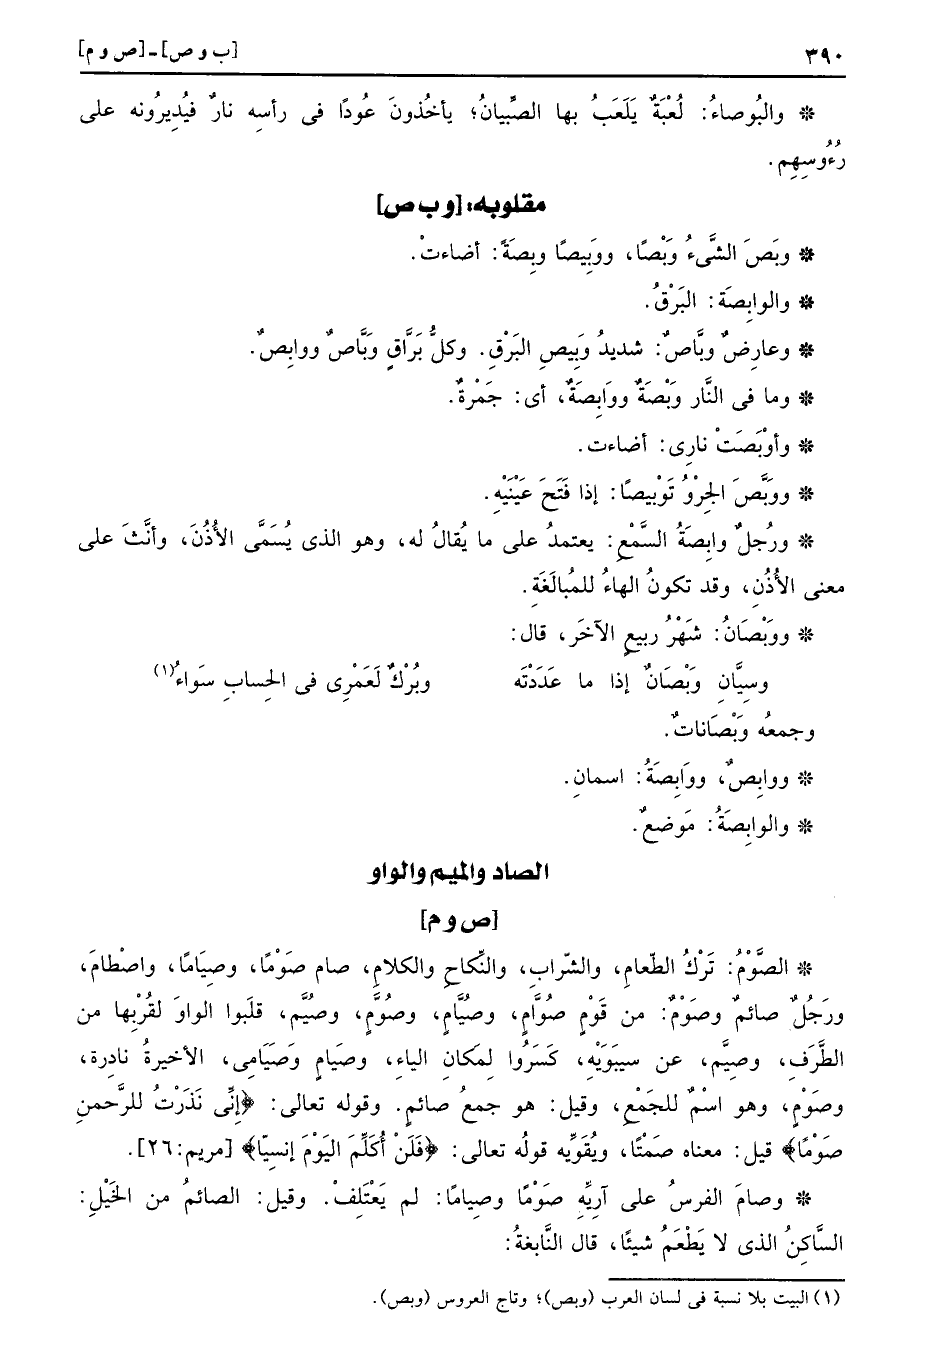 ٣٩٠ [ب و ص] - [ص و م]
❊ والبُوصاءُ: لُعْبَةٌ يَلَعَبُ بها الصِّبيانُ؛ يأخُذونَ عُودًا فى رأسِه نارٌ فيُدِيرُونه على
رُءُوسِهِم.
مقلوبه: [و ب ص]
❊ وبَصَ الشَّىءُ وَبْصًا، ووَبِيصًا وبِصَةً: أضاءتْ.
❊ والوابِصَة: البَرْقُ.
❊ وعارِضٌ وبَّاصٌ: شديدُ وَبِيصِ البَرْقِ. وكلُّ بَرَّاقٍ وَبَّاصٌ ووابِصٌ.
❊ وما فى النَّار وَبْصَةٌ ووَابِصَةٌ، أى: جَمْرةٌ.
❊ وأوْبَصَتْ نارِى: أضاءت.
❊ ووَبَّصَ الجِرْوُ تَوْبيصًا: إذا فَتَحَ عَيْنَيْهِ.
❊ ورُجلٌ وابِصَةُ السَّمْعِ: يعتمدُ على ما يُقالُ له، وهو الذى يُسَمَّى الأُذُنَ، وأنَّثَ على
معنى الأُذُنِ، وقد تكونُ الهاءُ للمُبالَغَةِ.
❊ ووَبْصَانُ: شَهْرُ ربيعٍ الآخَر، قال:
وسِيَّانِ وَبْصَانٌ إذا ما عَدَدْتَه وبُرْكٌ لَعَمْرِى فى الحِسابِ سَواءُ(١)
وجمعُه وَبْصَاناتٌ.
❊ ووابِصٌ، ووَابِصَةُ: اسمانِ.
❊ والوابِصَةُ: مَوضعٌ.
الصاد والميم والواو
[ص و م]
❊ الصَّوْمُ: تَرْكُ الطّعامِ، والشّرابِ، والنِّكاحِ والكلامِ، صام صَوْمًا، وصِيَامًا، واصْطامَ،
ورَجُلٌ صائمٌ وصَوْمٌ: من قَوْمٍ صُوَّامٍ، وصُيَّامٍ، وصُوَّمٍ، وصُيَّم، قلَبوا الواوَ لقُرْبِها من
الطَّرَفِ، وصِيَّم، عن سيبَوَيْهِ، كَسَرُوا لِمَكانِ الياء، وصَيامٍ وَصَيَامى، الأخيرةُ نادِرة،
وصَوْمٍ، وهو اسْمٌ للجَمْعِ، وقيل: هو جمعُ صائمٍ. وقوله تعالى: ﴿إِنِّى نَذَرْتُ للرَّحمنِ
صَوْمًا﴾ قيل: معناه صَمْتًا، ويُقَوِّيه قولُه تعالى: ﴿فَلَنْ أُكَلِّمَ اليَوْمَ إنسِيّا﴾ [مريم:٢٦].
❊ وصامَ الفرسُ على آرِيِّه صَوْمًا وصِياما: لم يَعْتَلِفْ. وقيل: الصائمُ من الخَيْلِ:
السَّاكِنُ الذى لا يَطْعَمُ شيئًا، قال النَّابغةُ:
(١) البيت بلا نسبة فى لسان العرب (وبص)؛ وتاج العروس (وبص).